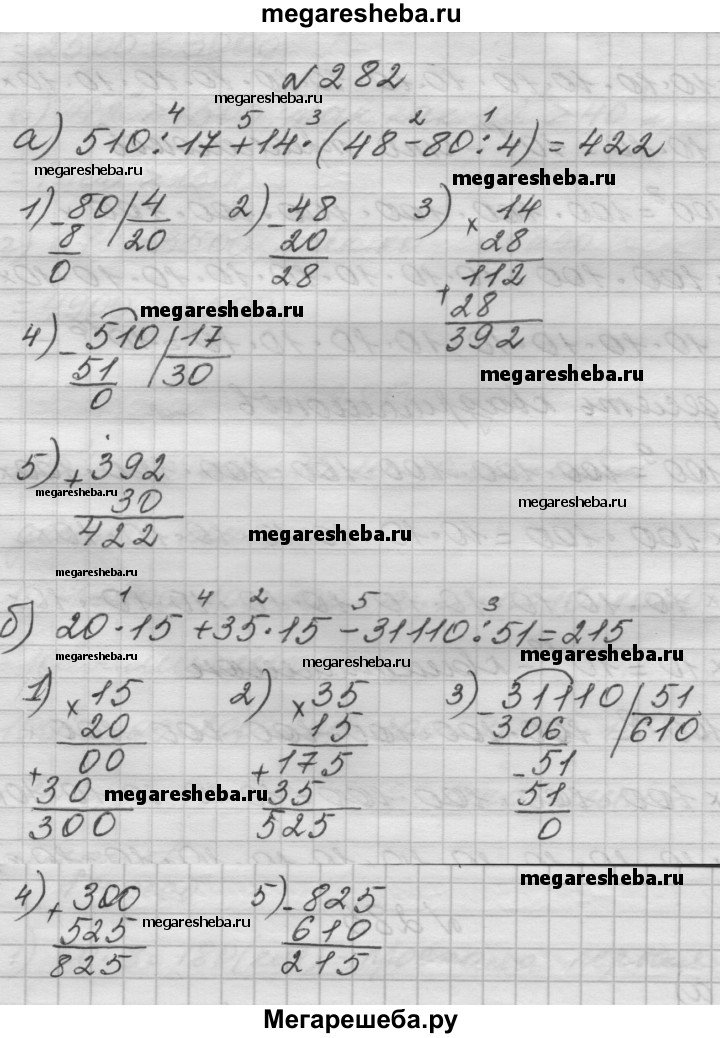 megaresheba.ru
№282
megaresheba.ru
4 5 3 2 1
а) 510:17+14·(48-80:4)=422
megaresheba.ru
megaresheba.ru
1) -80 | 4 2) -48 3) × 14
8 20 20 28
0 28 112
+28
392
megaresheba.ru
4) -510 | 17
51 30
0
megaresheba.ru
5) +392
megaresheba.ru
30
422
megaresheba.ru
megaresheba.ru
megaresheba.ru
1 4 2 5 3
б) 20·15+35·15-31110:51=215
megaresheba.ru
megaresheba.ru
megaresheba.ru
1) × 15 2) × 35 3) -31110 | 51
20 15 306 610
00 +175 -51
+30 35 51
300 525 0
megaresheba.ru
megaresheba.ru
megaresheba.ru
4) +300 5) -825
525 610
825 215
megaresheba.ru
megaresheba.ru
Мегарешеба.ру